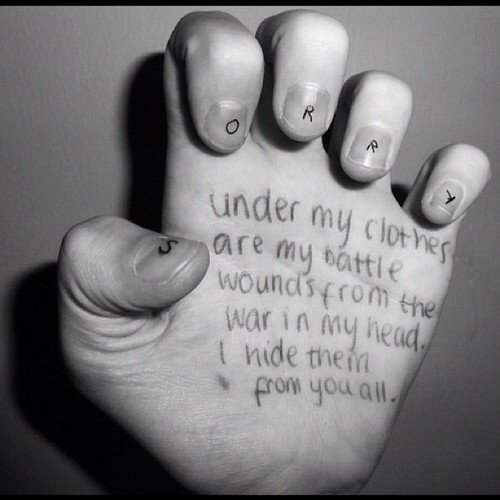 S
O
R
R
Y
under my clothes
are my battle
wounds from the
war in my head.
I hide them
from you all.